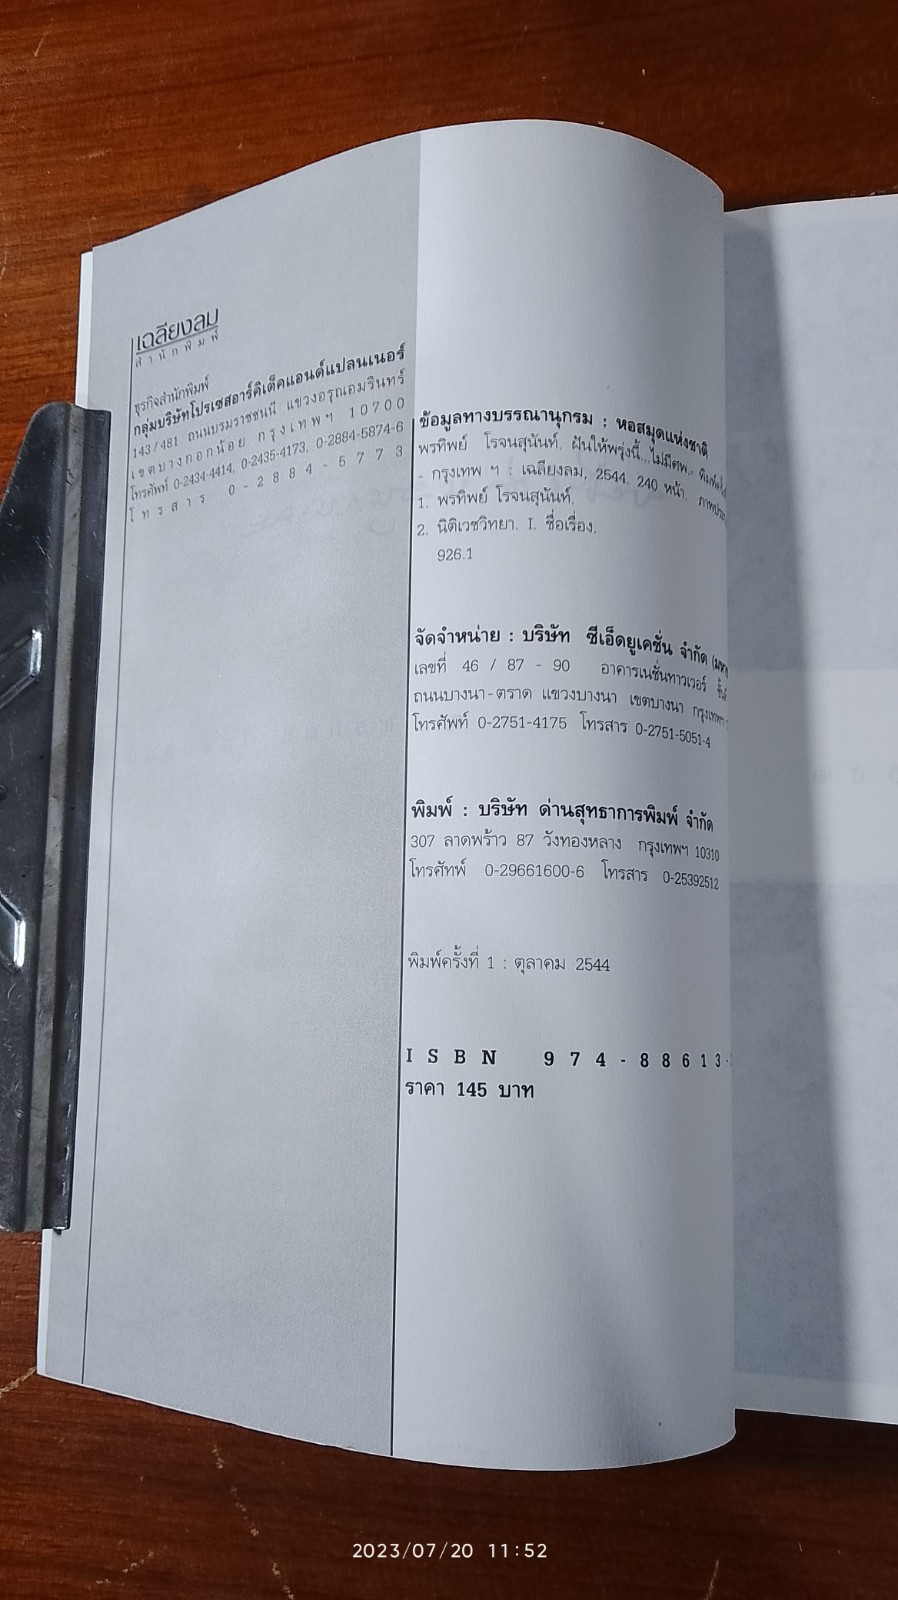 เฉลียงลม
สำนักพิมพ์
ธุรกิจสำนักพิมพ์
กลุ่มบริษัทโปรเซสอาร์คิเต็คแอนด์แปลนเนอร์
143/481 ถนนบรมราชชนนี แขวงอรุณอมรินทร์
เขตบางกอกน้อย กรุงเทพฯ 10700
โทรศัพท์ 0-2434-4414, 0-2435-4173, 0-2884-5874-6
โทรสาร 0-2884-5773
ข้อมูลทางบรรณานุกรม : หอสมุดแห่งชาติ
พรทิพย์ โรจนสุนันท์. ฝันให้พรุ่งนี้...ไม่มีศพ.-
- กรุงเทพ ฯ : เฉลียงลม, 2544. 240 หน้า.
1. พรทิพย์ โรจนสุนันท์.
2. นิติเวชวิทยา. I. ชื่อเรื่อง.
926.1
จัดจำหน่าย : บริษัท ซีเอ็ดยูเคชั่น จำกัด
เลขที่ 46 / 87 - 90 อาคารเนชั่นทาวเวอร์
ถนนบางนา-ตราด แขวงบางนา เขตบางนา กรุงเทพฯ
โทรศัพท์ 0-2751-4175 โทรสาร 0-2751-5051-4
พิมพ์ : บริษัท ด่านสุทธาการพิมพ์ จำกัด
307 ลาดพร้าว 87 วังทองหลาง กรุงเทพฯ 10310
โทรศัทพ์ 0-29661600-6 โทรสาร 0-25392512
พิมพ์ครั้งที่ 1 : ตุลาคม 2544
ISBN 974-88613-
ราคา 145 บาท
2023/07/20 11:52